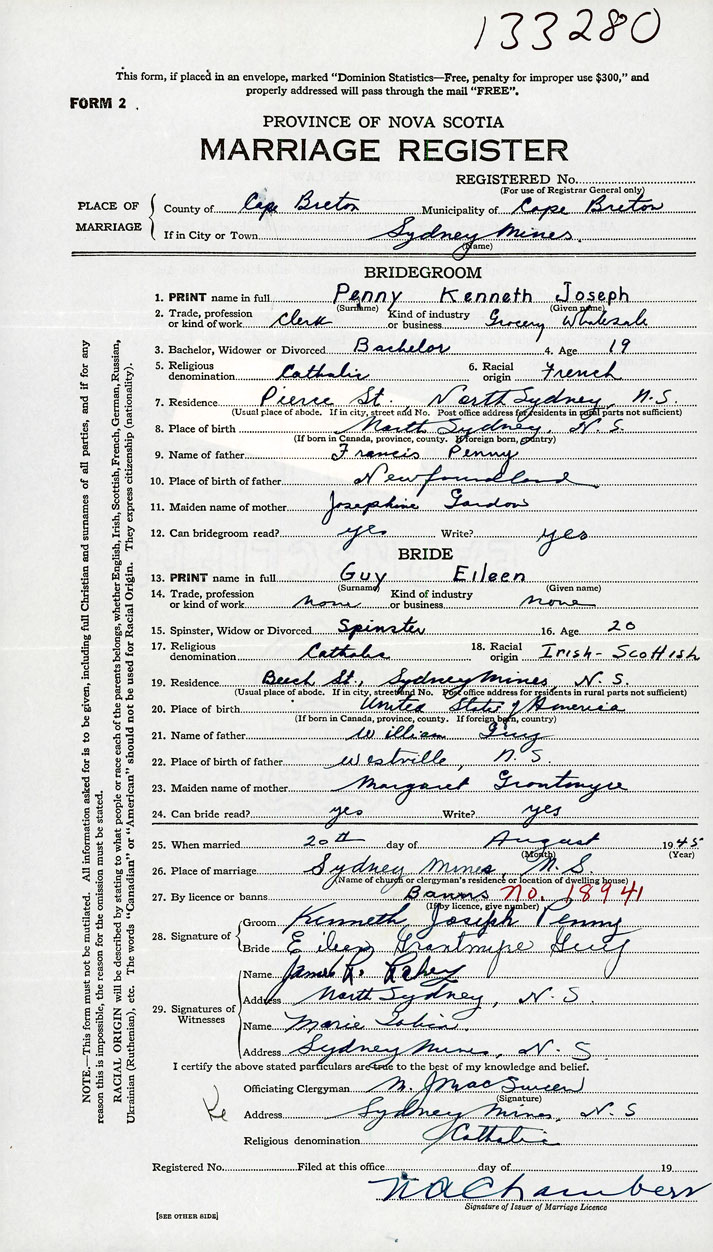 133280
This form, if placed in an envelope, marked "Dominion Statistics—Free, penalty for improper use $300," and
properly addressed will pass through the mail "FREE".
FORM 2
PROVINCE OF NOVA SCOTIA
MARRIAGE REGISTER
REGISTERED No.
(For use of Registrar General only)
PLACE OF MARRIAGE
County of Cape Breton Municipality of Cape Breton
If in City or Town Sydney Mines.
(Name)
BRIDEGROOM
1. PRINT name in full Penny Kenneth Joseph
(Surname) (Given name)
2. Trade, profession or kind of work Clerk Kind of industry or business Grocery Wholesale
3. Bachelor, Widower or Divorced Bachelor 4. Age 19
5. Religious denomination Catholic 6. Racial origin French
7. Residence Pierce St., North Sydney, N.S.
(Usual place of abode. If in city, street and No. Post office address for residents in rural parts not sufficient)
8. Place of birth North Sydney, N.S.
(If born in Canada, province, county. If foreign born, country)
9. Name of father Francis Penny
10. Place of birth of father Newfoundland
11. Maiden name of mother Josephine
12. Can bridegroom read? yes Write? yes
BRIDE
13. PRINT name in full Guy Eileen
(Surname) (Given name)
14. Trade, profession or kind of work none Kind of industry or business none
15. Spinster, Widow or Divorced Spinster 16. Age 20
17. Religious denomination Catholic 18. Racial origin Irish-Scottish
19. Residence Beech St., Sydney Mines, N.S.
(Usual place of abode. If in city, street and No. Post office address for residents in rural parts not sufficient)
20. Place of birth United State of America
(If born in Canada, province, county. If foreign born, country)
21. Name of father William Guy
22. Place of birth of father Westville, N.S.
23. Maiden name of mother Margaret
24. Can bride read? yes Write? yes
25. When married 20th day of August 1945
(Month) (Year)
26. Place of marriage Sydney Mines, N.S.
(Name of church or clergyman's residence or location of dwelling house)
27. By licence or banns Banns No. 18941
(If by licence, give number)
28. Signature of Groom Kenneth Joseph Penny
Bride Eileen Grantmyre Guy
29. Signatures of Witnesses
Name James R.
Address North Sydney, N.S.
Name Marie Tobin.
Address Sydney Mines, N.S.
I certify the above stated particulars are true to the best of my knowledge and belief.
Officiating Clergyman M. J. MacSween
(Signature)
Address Sydney Mines, N.S
Religious denomination Catholic
Registered No. Filed at this office day of 19
N A Chambers
Signature of Issuer of Marriage Licence
[SEE OTHER SIDE]
NOTE.—This form must not be mutilated. All information asked for is to be given, including full Christian and surnames of all parties, and if for any
reason this is impossible, the reason for the omission must be stated.
RACIAL ORIGIN will be described by stating to what people or race each of the parents belongs, whether English, Irish, Scottish, French, German, Russian,
Ukrainian (Ruthenian), etc. The words "Canadian" or "American" should not be used for Racial Origin. They express citizenship (nationality).